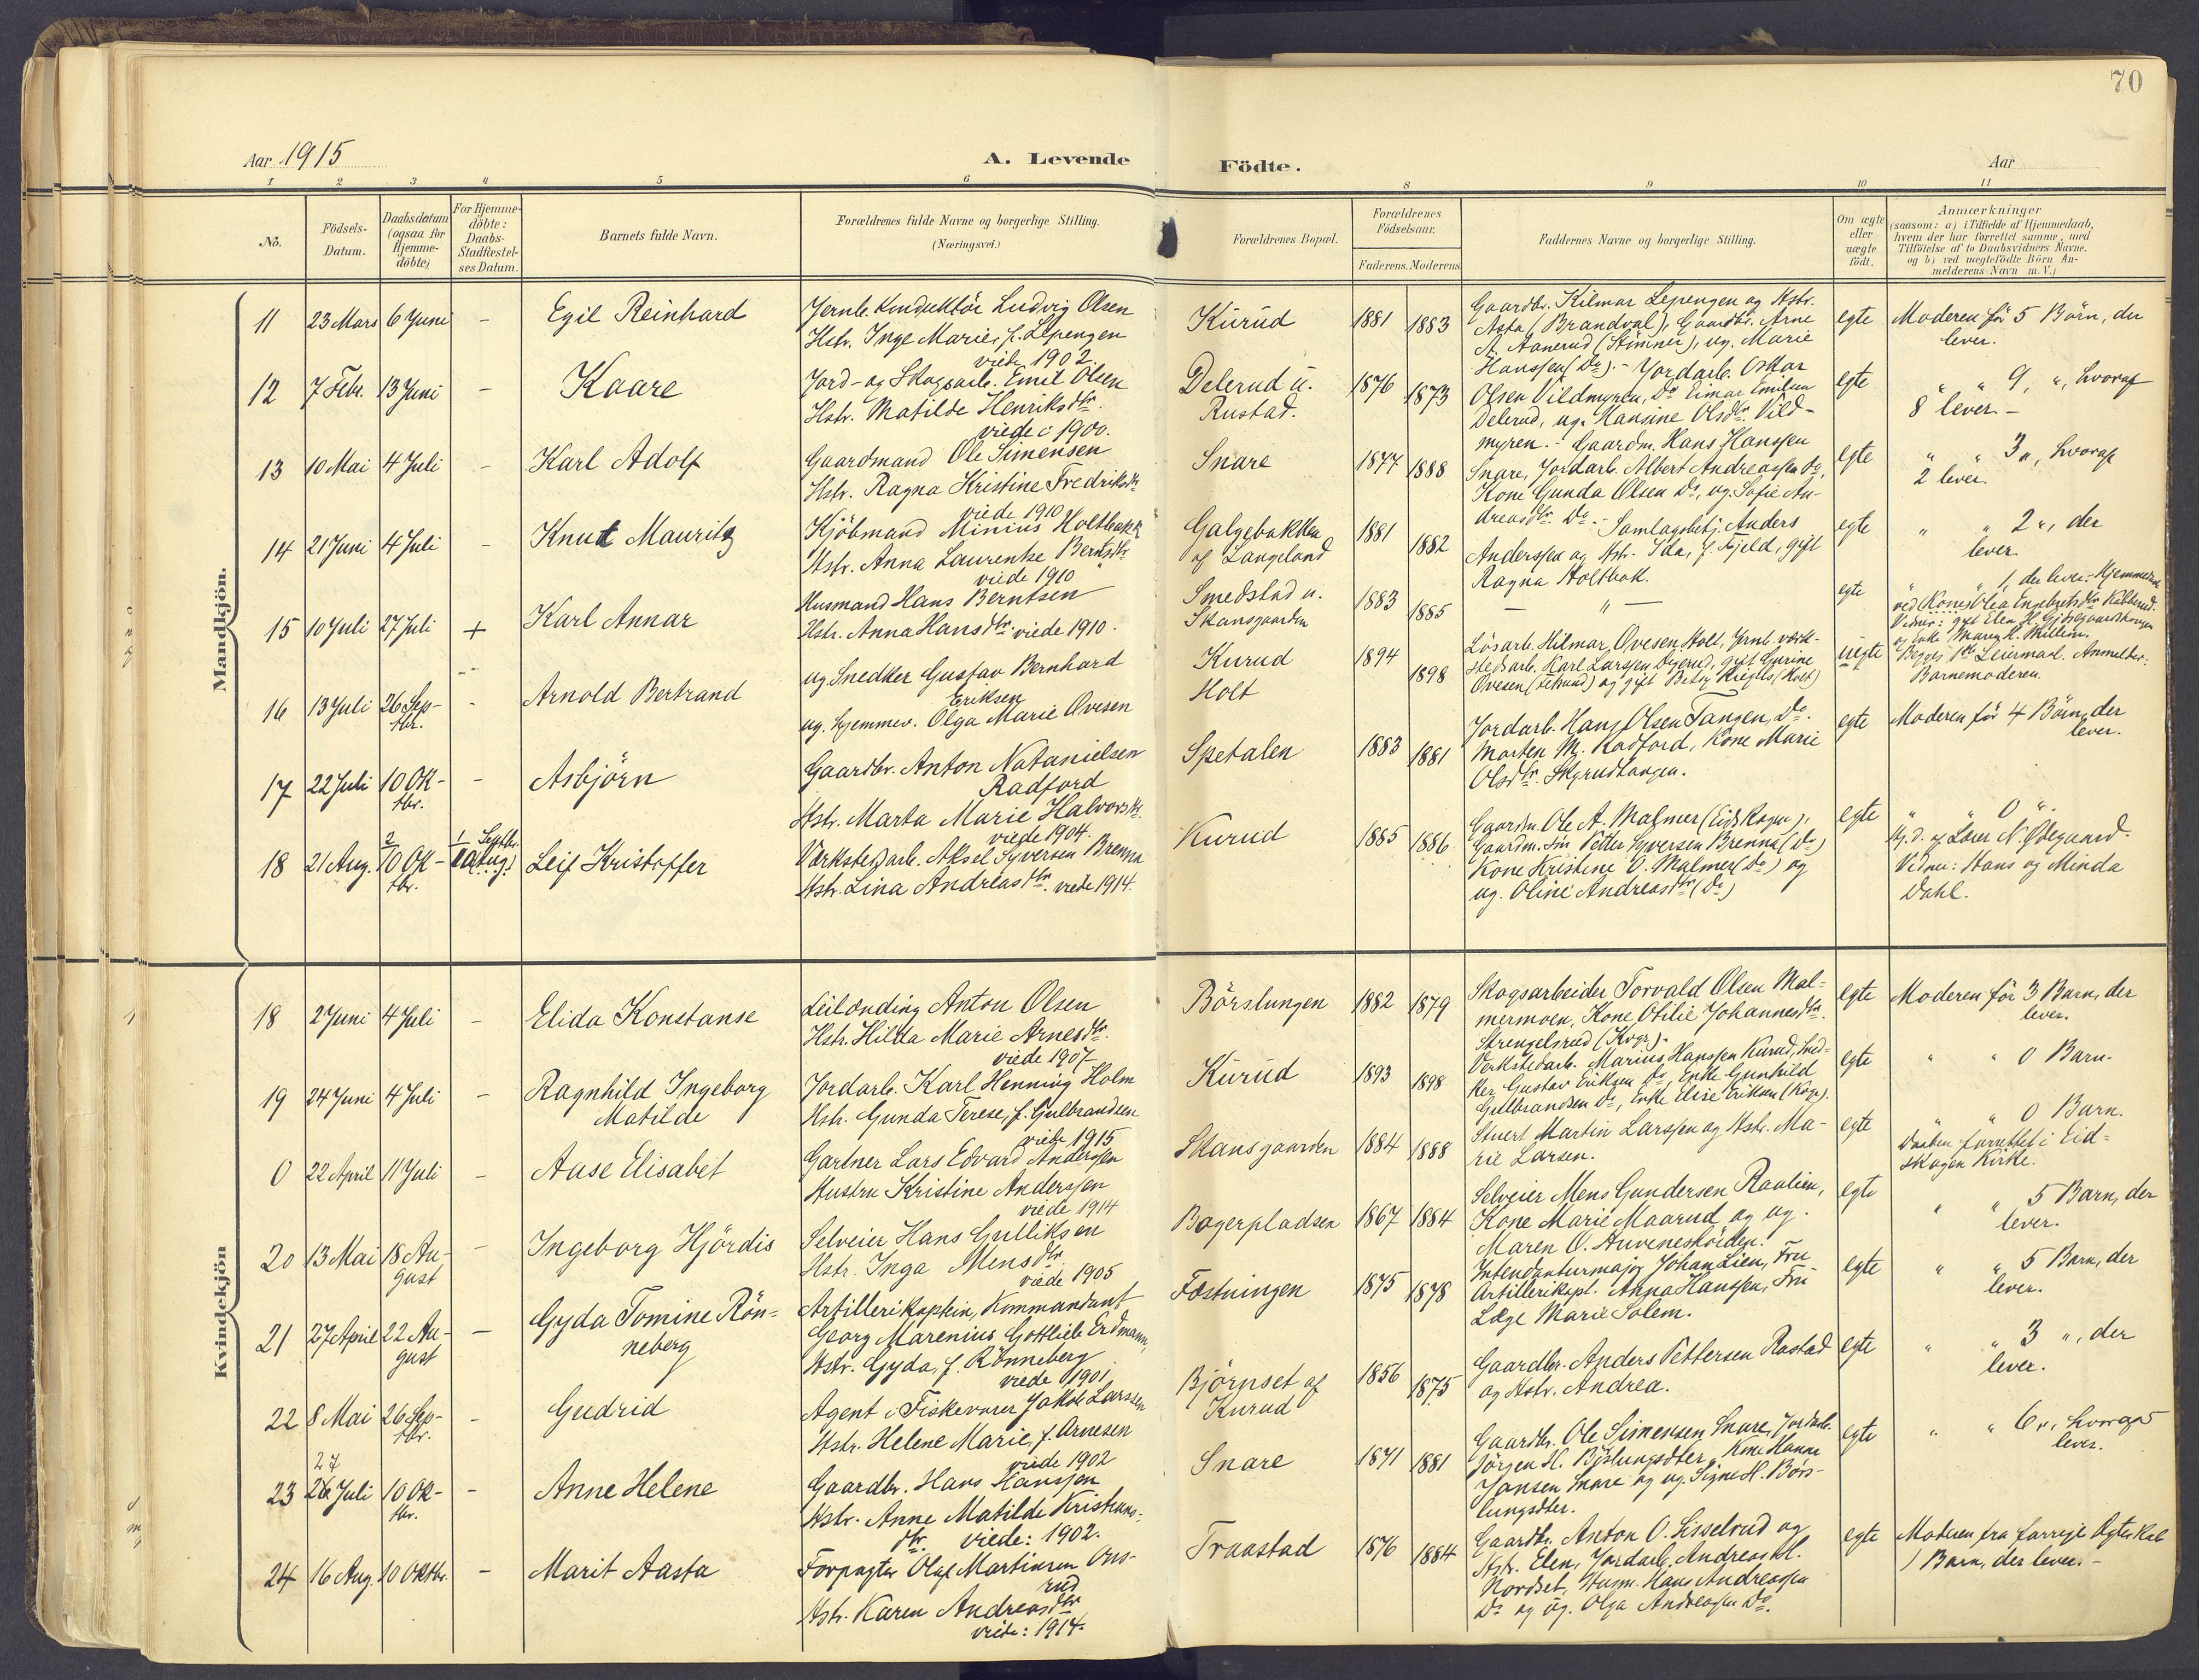 70
Aar 1915
A. Levende
Födte.
Aar
1 2 3 4 5 6 8 9 10 11
No.
Födsels-
Datum.
Daabsdatum
(ogsaa for
Hjemme-
döbte)
For Hjemme-
döbte:
Daabs-
Stadfæstel-
ses Datum.
Barnets fulde Navn.
Forældrenes fulde Navne og borgerlige Stilling.
(Næringsvei.)
Forældrenes Bopæl.
Forældrenes
Födselsaar.
Faderens. Moderens
Faddernes Navne og borgerlige Stilling.
Om ægte
eller
uægte
födt.
Anmærkninger
(saasom: a) i Tilfælde af Hjemmedaab,
hvem der har forrettet samme, med
Tilföielse af to Daabsvidners Navne,
og b) ved uægtefödte Börn An-
melderens Navn m. V.)
Mandkjön.
11 23 Mars 6 Juni - Egil Reinhard
Jernb. Konduktör Ludvig Olsen
Hstr. Inge Marie, f. Lepengen
viede 1902.
Kurud 1881 1883
Gaardbr. Hilmar Lepengen og Hstr.
Asta (Brandval), Gaardbr. Arne
A. Aanerud (Stömner), ug. Marie
Hanssen (Do).
egte
Moderen för 5 Börn, der
lever.
12 7 Febr. 13 Juni - Kaare
Jord- og Skogsarb. Emil Olsen
Hstr. Matilde Henriksdtr.
viede i 1900.
Delerud u.
Rustad.
1876 1873
Jordarb. Oskar
Olsen Vildmyren, Do Einar Emilsen
Delerud, ug. Hansine Olsdtr. Vild-
myren.
egte
" " 9, ", hvoraf
8 lever. -
13 10 Mai 4 Juli - Karl Adolf
Gaardmand Ole Simensen
Hstr. Ragna Kristine Fredriksdtr
viede 1910
Snare 1877 1888
Gaardm. Hans Hanssen
Snare, Jordarb. Albert Andreassen Do,
Kone Gunda Olsen Do, ug. Sofie An-
dreasdtr. Do.
egte
" " 3 ", hvoraf
2 lever.
14 21 Juni 4 Juli - Knut Mauritz
Kjöbmand Minius Holtbakk
Hstr. Anna Laurentze Berntsdtr.
viede 1910
Galgebakken
af Langeland
1881 1882
Samlagsbetj. Anders
Anderssen og Hstr. Ida, f. Fjeld, gift
Ragna Holtbak.
egte
" " 2 ", der
lever.
15 10 Juli 27 Juli + Karl Annar
Husmand Hans Berntsen
Hstr. Anna Hansdtr. viede 1910.
Smedstad u.
Skansgaarden
1883 1885
— " —
egte
" " 1, der lever. - Hjemmedöbt
ved Kone Olea Engebretsdtr Kabberud.
16 13 Juli 26 Sep-
tbr. - Arnold Bertrand
ug. Snedker Gustav Bernhard
Eriksen
ug. hjemmev. Olga Marie Ovesen
Kurud
Holt
1894 1898
Lösarb. Hilmar Ovesen Holt, Jernb. værk-
stedsarb. Karl Larssen Digerud, gift Gurine
uegte
Begges 1ste Leiermaal. Anmelder:
Barnemoderen.
17 22 Juli 10 Ok-
tbr. - Asbjörn
Gaardbr. Anton Natanielsen
Radford
Hstr. Marta Marie Halvorsdtr.
viede 1904.
Spetalen 1883 1881
Jordarb. Hans Olsen Tangen, Do.
Morten M. Radford, Kone Marie
Olsdtr. Skyrudtangen.
egte
Moderen för 4 Börn, der
lever.
18 21 Aug. 2/10 Ok-
tbr. 1 Septbr. Leif Kristoffer
Værkstedsarb. Aksel Syversen Brenna
Hstr. Lina Andreasdtr. viede 1914.
Kurud 1885 1886
Gaardm. Ole A. Malmer (Eidskogen),
Gaardm. Sön Petter Syversen Brenna (Do)
Kone Kristine O. Malmer (Do) og
ug. Oline Andreasdtr (Do)
egte
" " 0 ".
Hj. d. af Lærer N. Ödegaard.
Vidner: Hans og Minda
Dahl.
Kvindekjön
18 2 Juni 4 Juli - Elida Konstanse
Leilænding Anton Olsen
Hstr. Hilda Marie Arnesdtr.
viede 1907
Börslungen 1882 1879
Skogsarbeider Torvald Olsen Mal-
mermoen, Kone Otilie Johannesdtr.
Strengelsrud (Kvgr).
egte
Moderen för 3 Barn, der
lever.
19 24 Juni 4 Juli - Ragnhild Ingeborg
Matilde
Jordarb. Karl Henning Holm
Hstr. Gunda Terese, f. Gulbrandsen
viede 1915
Kurud 1893 1898
Verkstedarb. Marius Hanssen Kurud, Sned-
ker Gustav Eriksen Do, Enke Gunhild
Gulbrandsen Do, Enke Elise Eriksen (Kvgr).
egte
" " 0 Barn.
0 22 April 11 Juli - Aase Elisabet
Gartner Lars Edvard Anderssen
Hustru Kristine Anderssen
viede 1914
Skansgaarden 1884 1888
Stuert Martin Larssen og Hstr. Ma-
rie Larsen.
egte
" " 0 Barn.
Daaben forrettet i Eid-
skogen Kirke.
20 13 Mai 18 Au-
gust - Ingeborg Hjördis
Selveier Hans Gulliksen
Hstr. Inga Mensdtr
viede 1905
Bagerpladsen 1867 1884
Selveier Mens Gundersen Raulien,
Kone Marie Maarud og ug.
Maren O.
egte
" " 5 Barn, der
lever.
21 27 April 22 Au-
gust - Gyda Tomine Rön-
neberg
Artillerikaptein, Kommandant
Georg Marenius Gottlieb Erdmann,
Hstr. Gyda, f. Rönneberg
viede 1901
Fæstningen 1875 1878
Intendanturmajor Johan Lien, Fru
Artillerikapt. Anna Hanssen, Fru
Læge Marie Solem.
egte
" " 5 Barn, der
lever.
22 8 Mai 26 Sep-
tbr. - Gudrid
Agent i Fiskevarer Jakob Larssen
Hstr. Helene Marie, f. Arnesen
viede 1902
Björnset af
Kurud
1856 1875
Gaardbr. Anders Pettersen Rastad
og Hstr. Andrea.
egte
" " 3 ", der
lever.
27
23 26 Juli 10 Ok-
tbr. - Anne Helene
Gaardbr. Hans Hanssen
Hstr. Anne Matilde Kristians-
dtr. viede: 1902.
Snare 1871 1881
Gaardbr. Ole Simensen Snare, Jordarb.
Jörgen H. Börslungsæter, Kone Hanna
Jansen Snare og ug. Signe H. Börs-
lungsæter.
egte
" " 6 ", hvoraf 5
lever.
24 16 Aug. 10 Oktbr. - Marit Aasta
Forpagter Olaf Martinsen Ous-
rud
Hstr. Karen Andreasdtr
viede: 1914.
Traastad 1876 1884
Gaardbr. Anton O. Sisselrud og
Hstr. Elen, Jordarb. Andreas Kl.
Nordset, Husm. Hans Andreassen
Do og ug. Olga Andreassen Do.
egte
Moderen fra forrige Egteskab
1 Barn, der lever. -